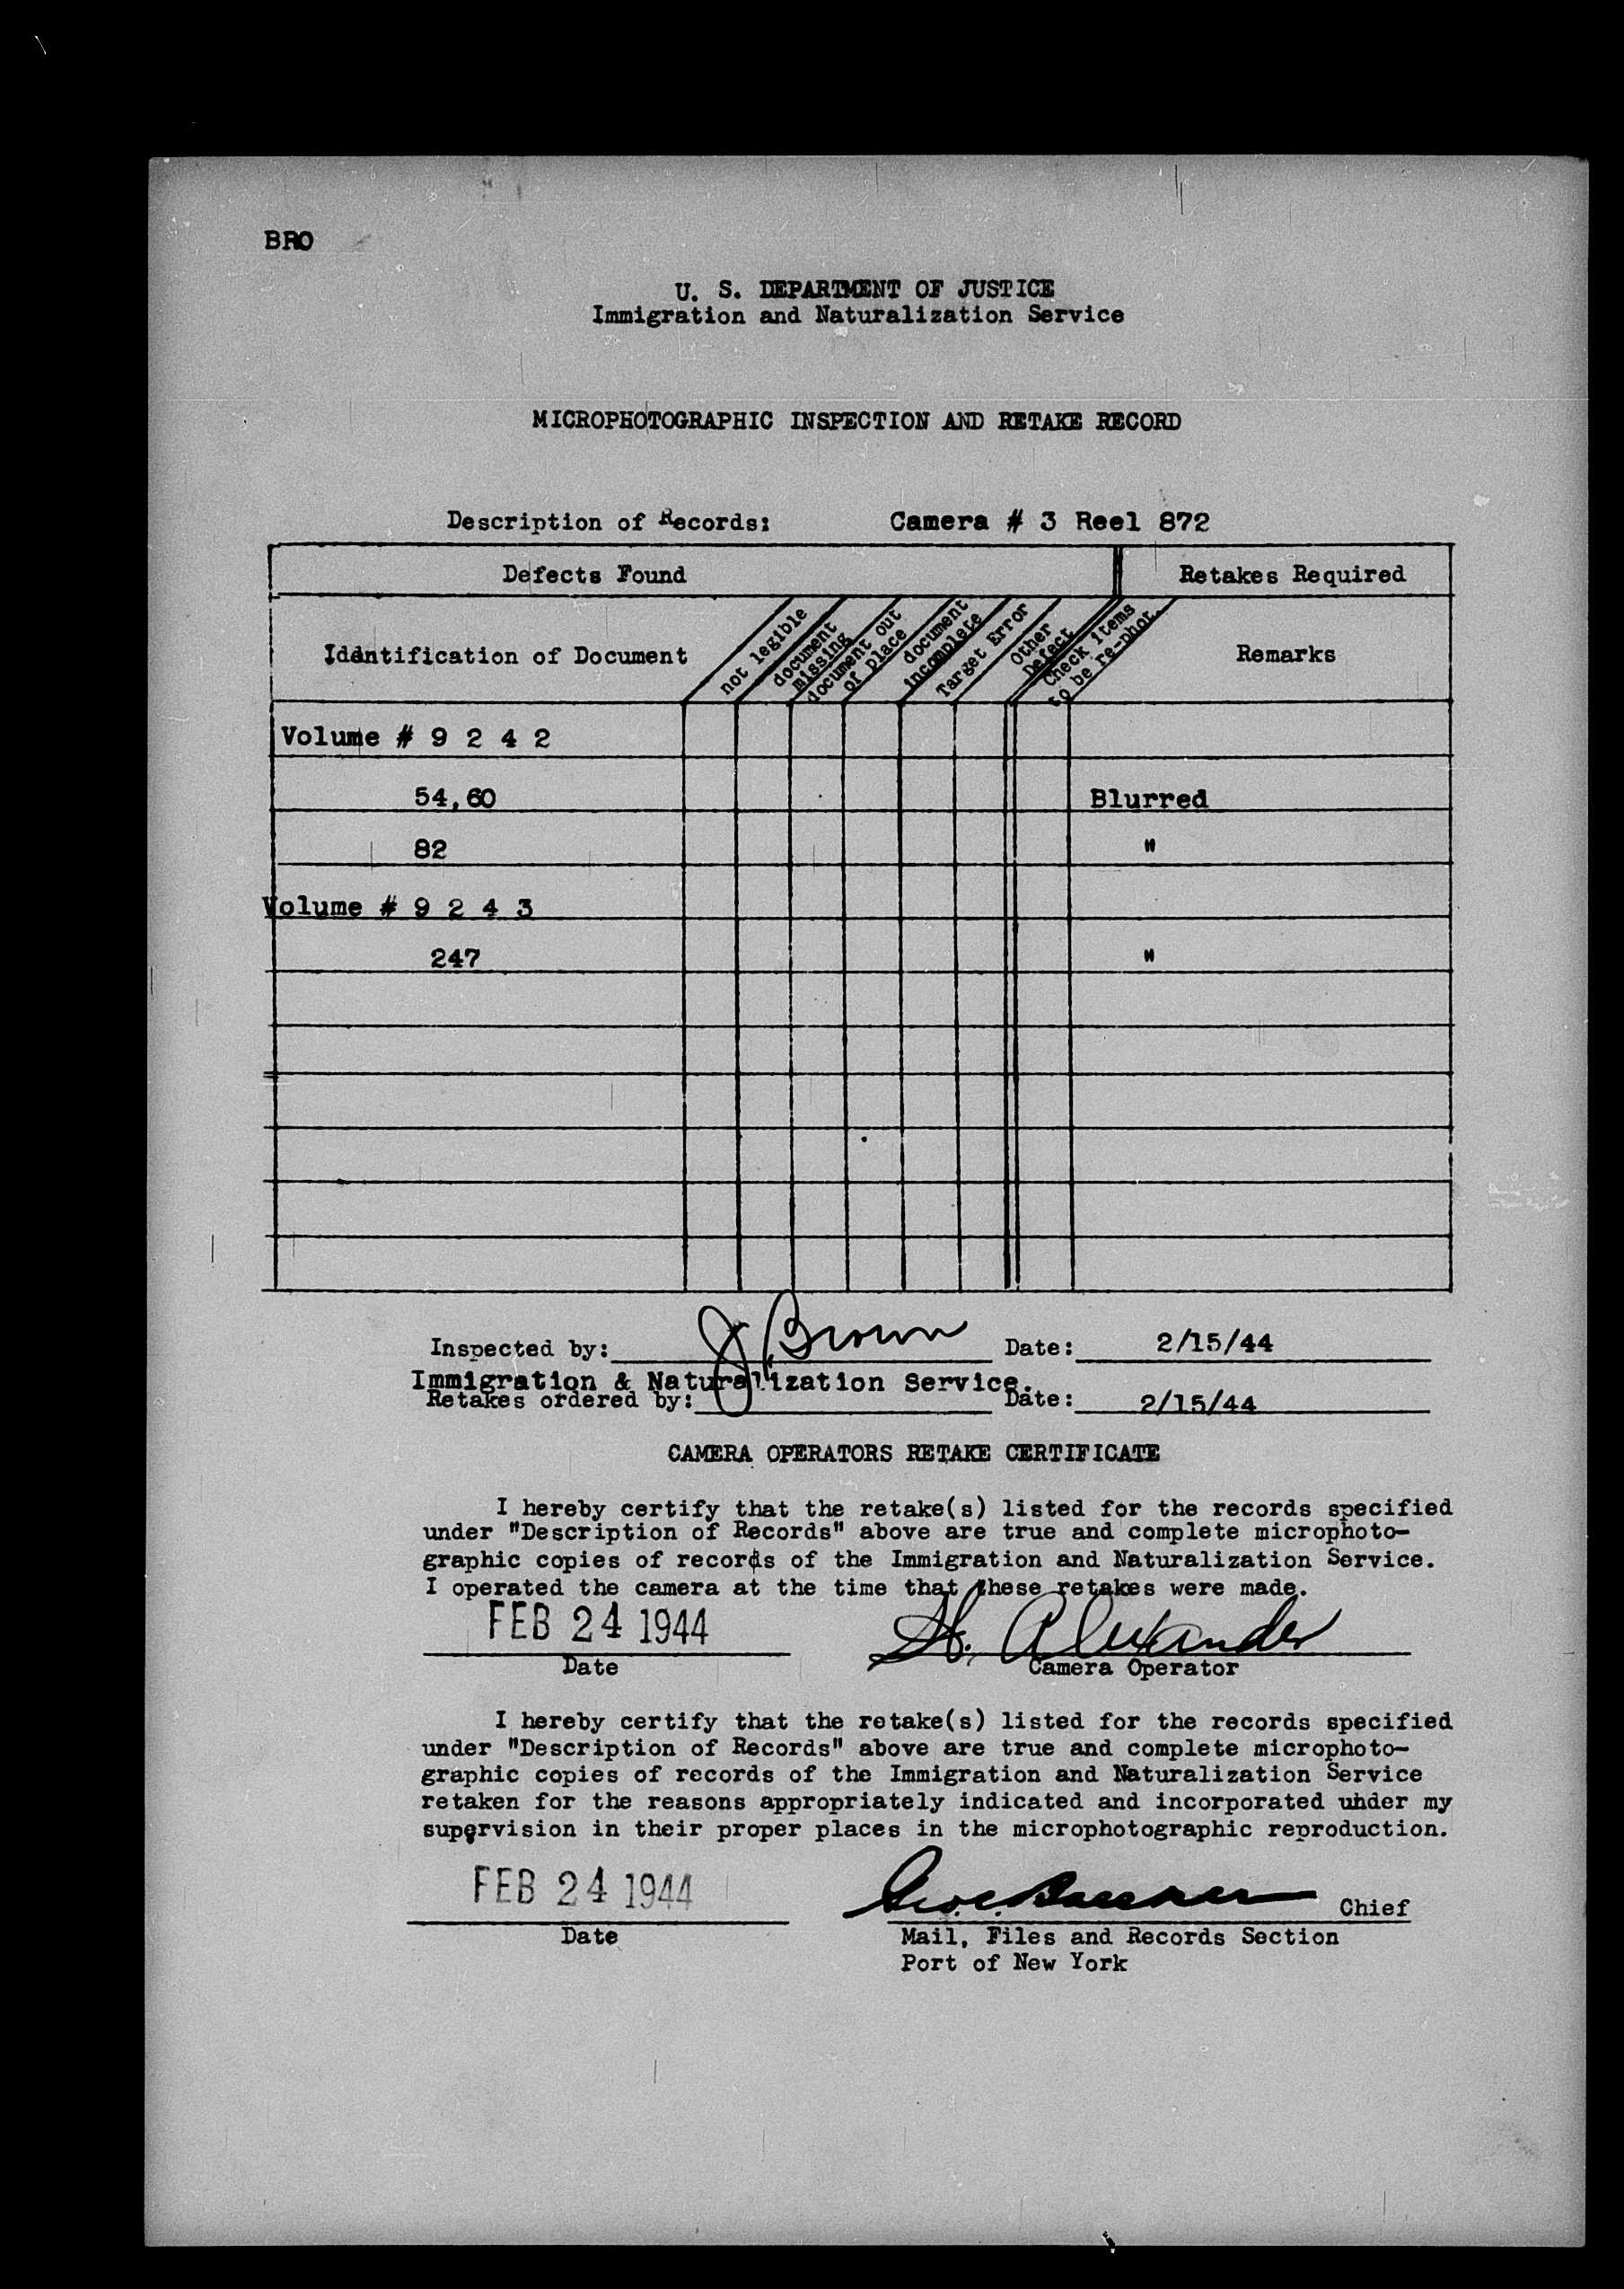 BRO
U. S. DEPARTMENT OF JUSTICE
Immigration and Naturalization Service
MICROPHOTOGRAPHIC INSPECTION AND RETAKE RECORD
Description of Records: Camera # 3 Reel 872
Defects Found Retakes Required
Identification of Document
not legible
document
missing
document out
of place
document
incomplete
Target Error
Other
Defect
Check items
to be re-phot.
Remarks
Volume # 9 2 4 2
54,60 Blurred
82 "
Volume # 9 2 4 3
247 "
Inspected by: J Brown Date: 2/15/44
Immigration & Naturalization Service.
Retakes ordered by: Date: 2/15/44
CAMERA OPERATORS RETAKE CERTIFICATE
I hereby certify that the retake(s) listed for the records specified
under "Description of Records" above are true and complete microphoto-
graphic copies of records of the Immigration and Naturalization Service.
I operated the camera at the time that these retakes were made.
FEB 24 1944 Alexander
Date Camera Operator
I hereby certify that the retake(s) listed for the records specified
under "Description of Records" above are true and complete microphoto-
graphic copies of records of the Immigration and Naturalization Service
retaken for the reasons appropriately indicated and incorporated under my
supervision in their proper places in the microphotographic reproduction.
FEB 24 1944 Chief
Date Mail, Files and Records Section
Port of New York